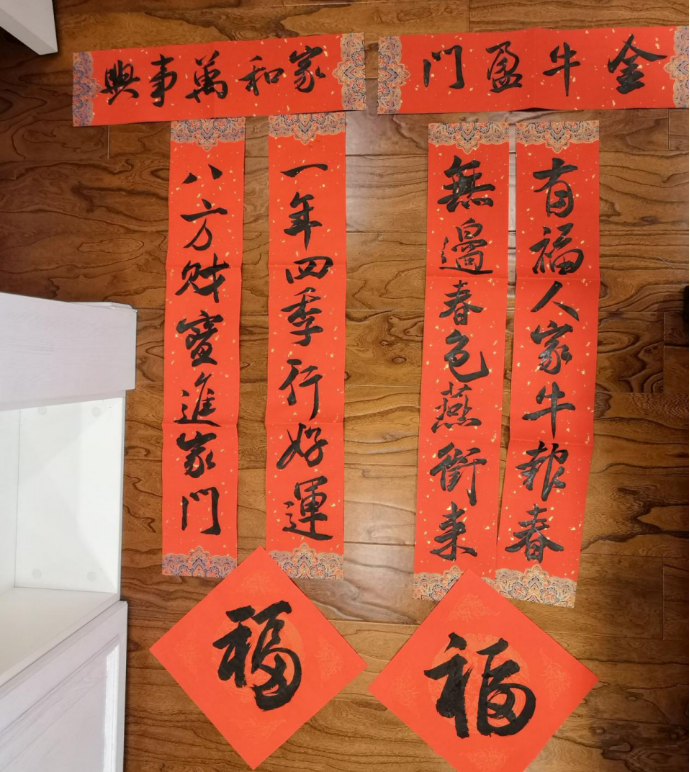 金牛盈門
有福人家牛報春
無邊春色燕銜來
家和萬事興
一年四季行好運
八方財寶進家門
福
福